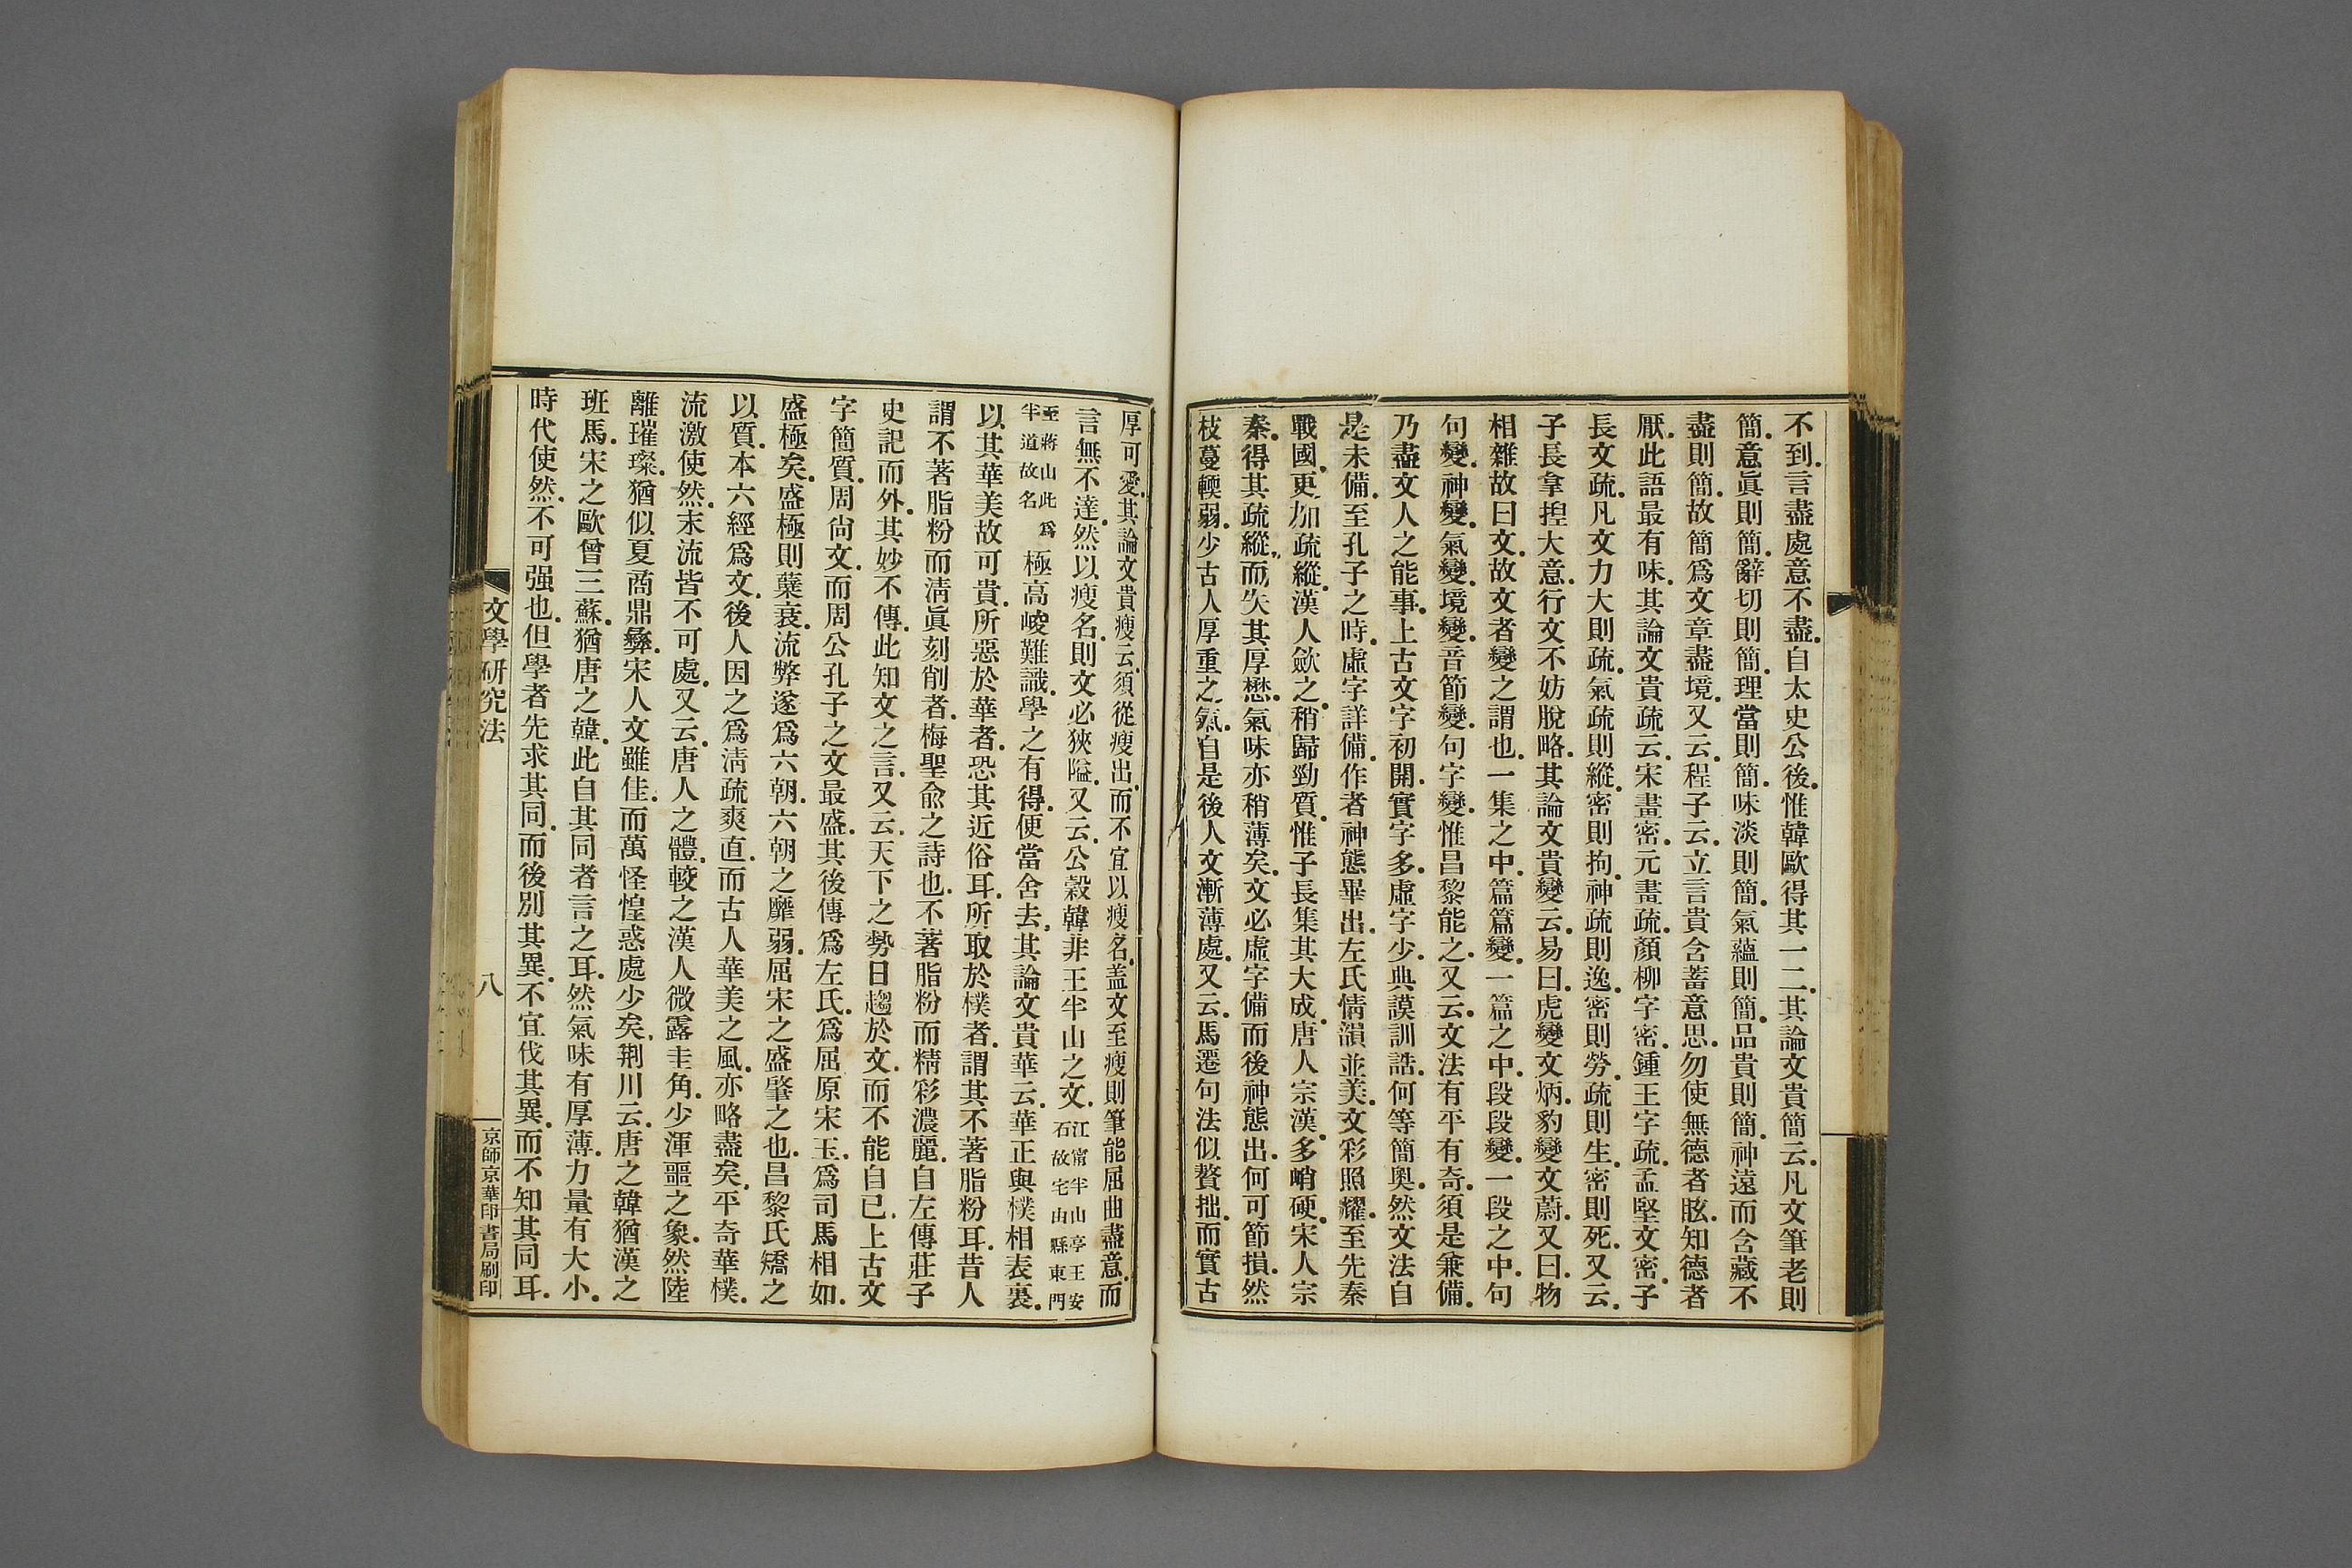 不到.言盡處意不盡.自太史公後.惟韓歐得其一二.其論文貴簡云.凡文筆老則
簡.意眞則簡.辭切則簡.理當則簡.味淡則簡.氣蘊則簡.品貴則簡.神遠而含藏不
盡則簡.故簡爲文章盡境.又云.程子云.立言貴含蓄意思.勿使無德者眩.知德者
厭.此語最有味.其論文貴疏云.宋畫密.元畫疏.顏柳字密.鍾王字疏.孟堅文密.子
長文疏.凡文力大則疏.氣疏則縱.密則拘.神疏則逸.密則勞.疏則生.密則死.又云.
子長拿揑大意.行文不妨脫略.其論文貴變云.易曰.虎變文炳.豹變文蔚.又曰.物
相雜故曰文.故文者變之謂也.一集之中.篇篇變.一篇之中.段段變.一段之中.句
句變.神變.氣變.境變.音節變.句字變.惟昌黎能之.又云.文法有平有奇.須是兼備.
乃盡文人之能事.上古文字初開.實字多.虛字少.典謨訓誥.何等簡奧.然文法自
是未備.至孔子之時.虛字詳備.作者神態畢出.左氏情韻並美.文彩照耀.至先秦
戰國.更加疏縱.漢人歛之.稍歸勁質.惟子長集其大成.唐人宗漢.多峭硬.宋人宗
秦.得其疏縱.而失其厚懋.氣味亦稍薄矣.文必虛字備而後神態出.何可節損.然
枝蔓輭弱.少古人厚重之氣.自是後人文漸薄處.又云.馬遷句法似贅拙.而實古
厚可愛.其論文貴瘦云.須從瘦出.而不宜以瘦名.盖文至瘦則筆能屈曲盡意.而
言無不達.然以瘦名.則文必狹隘.又云.公穀韓非王半山之文.江甯半山亭王安石故宅由縣東門
至蔣山此爲半道故名極高峻難識.學之有得.便當舍去.其論文貴華云.華正與樸相表裏.
以其華美故可貴.所惡於華者.恐其近俗耳.所取於樸者.謂其不著脂粉耳.昔人
謂不著脂粉而淸眞刻削者.梅聖兪之詩也.不著脂粉而精彩濃麗.自左傳莊子
史記而外.其妙不傳.此知文之言.又云.天下之勢日趨於文.而不能自已.上古文
字簡質.周尙文.而周公孔子之文最盛.其後傳爲左氏.爲屈原宋玉.爲司馬相如.
盛極矣.盛極則蘖衰.流弊遂爲六朝.六朝之靡弱.屈宋之盛肇之也.昌黎氏矯之
以質.本六經爲文.後人因之.爲淸疏爽直.而古人華美之風.亦略盡矣.平奇華樸.
流激使然.末流皆不可處.又云.唐人之體.較之漢人微露圭角.少渾噩之象.然陸
離璀璨.猶似夏商鼎彝.宋人文雖佳.而萬怪惶惑處少矣.荆川云.唐之韓猶漢之
班馬.宋之歐曾三蘇.猶唐之韓.此自其同者言之耳.然氣味有厚薄.力量有大小.
時代使然.不可强也.但學者先求其同.而後別其異.不宜伐其異.而不知其同耳.
文學研究法
八
京師京華印書局刷印